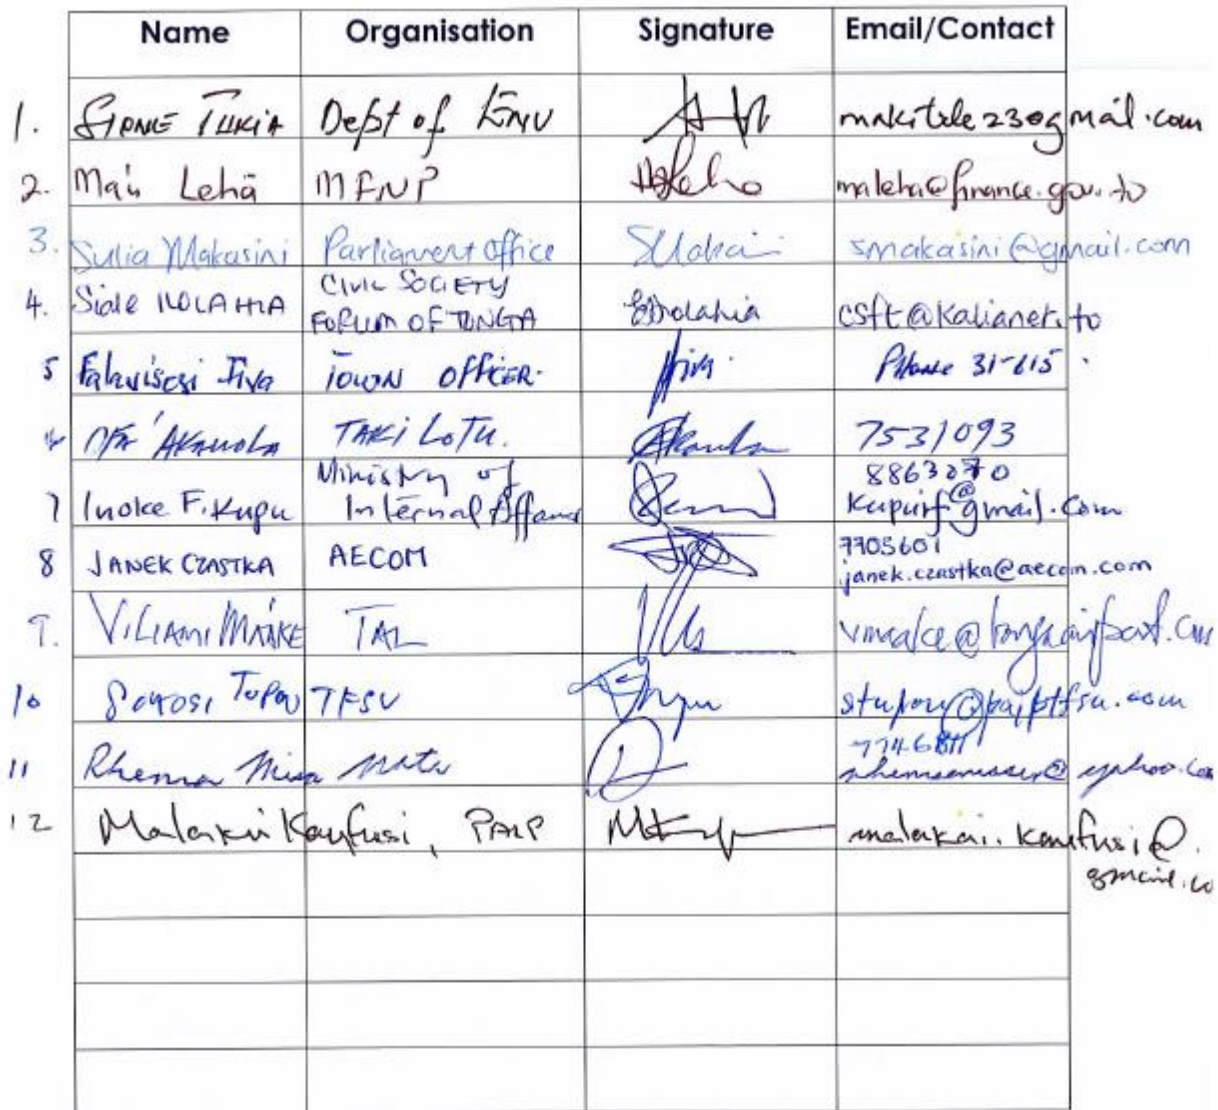 Name Organisation Signature Email/Contact
1. SIONE TUKIA Dept of ENV makitele23@gmail.com
2. Ma'u Lehā MFNP maleha@finance.gov.to
3. Sulia Makasini Parliament Office smakasini@gmail.com
4. Siale ILOLAHIA CIVIL SOCIETY
FORUM OF TONGA Ilolahia csft@kalianet.to
5 Fiva TOWN OFFICER. Fiva. Phone 31-615.
'AKAUOLA TAKI LOTU. 7531093
7 Inoke F. Kupu Ministry of
Internal Affairs 8863270
kupuif@gmail.com
8 JANEK CZASTKA AECOM 7705601
janek.czastka@aecom.com
9. VILIAMI MAAKE TAL vmaake@tongaairport.com
10 TUPOU TFSU
11 Rhema Misa 7746811
yahoo.com
12 Malakai Kaufusi, PAIP malakai.kaufusi@
gmail.co